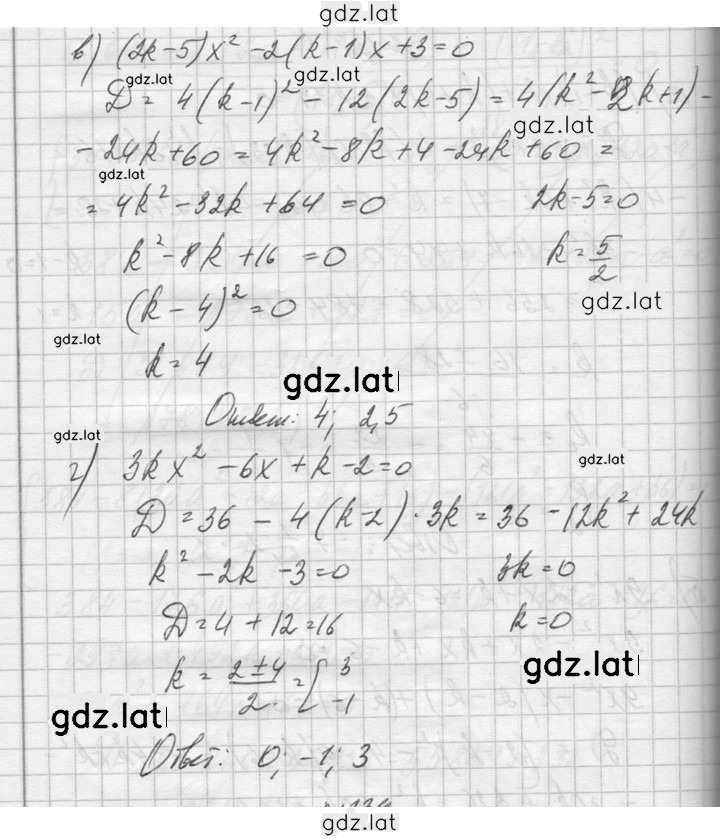 gdz.lat
в) (2k-5)x² -2(k-1)x+3=0
gdz.lat
gdz.lat
D = 4(k-1)² - 12(2k-5) = 4(k²-2k+1) -
gdz.lat
- 24k+60 = 4k²-8k+4-24k+60 =
gdz.lat
= 4k²-32k+64 = 0 2k-5=0
k²-8k+16 = 0 k = 5/2
gdz.lat
(k-4)² = 0
gdz.lat
k = 4
gdz.lat
Ответ: 4; 2,5
gdz.lat
г) 3kx² -6x+k-2=0
gdz.lat
D = 36 - 4(k-2)·3k = 36 -12k²+24k
k²-2k-3=0 3k=0
D=4+12=16 k=0
k = (2±4)/2 = [3 -1
gdz.lat
gdz.lat
Ответ: 0; -1; 3
gdz.lat